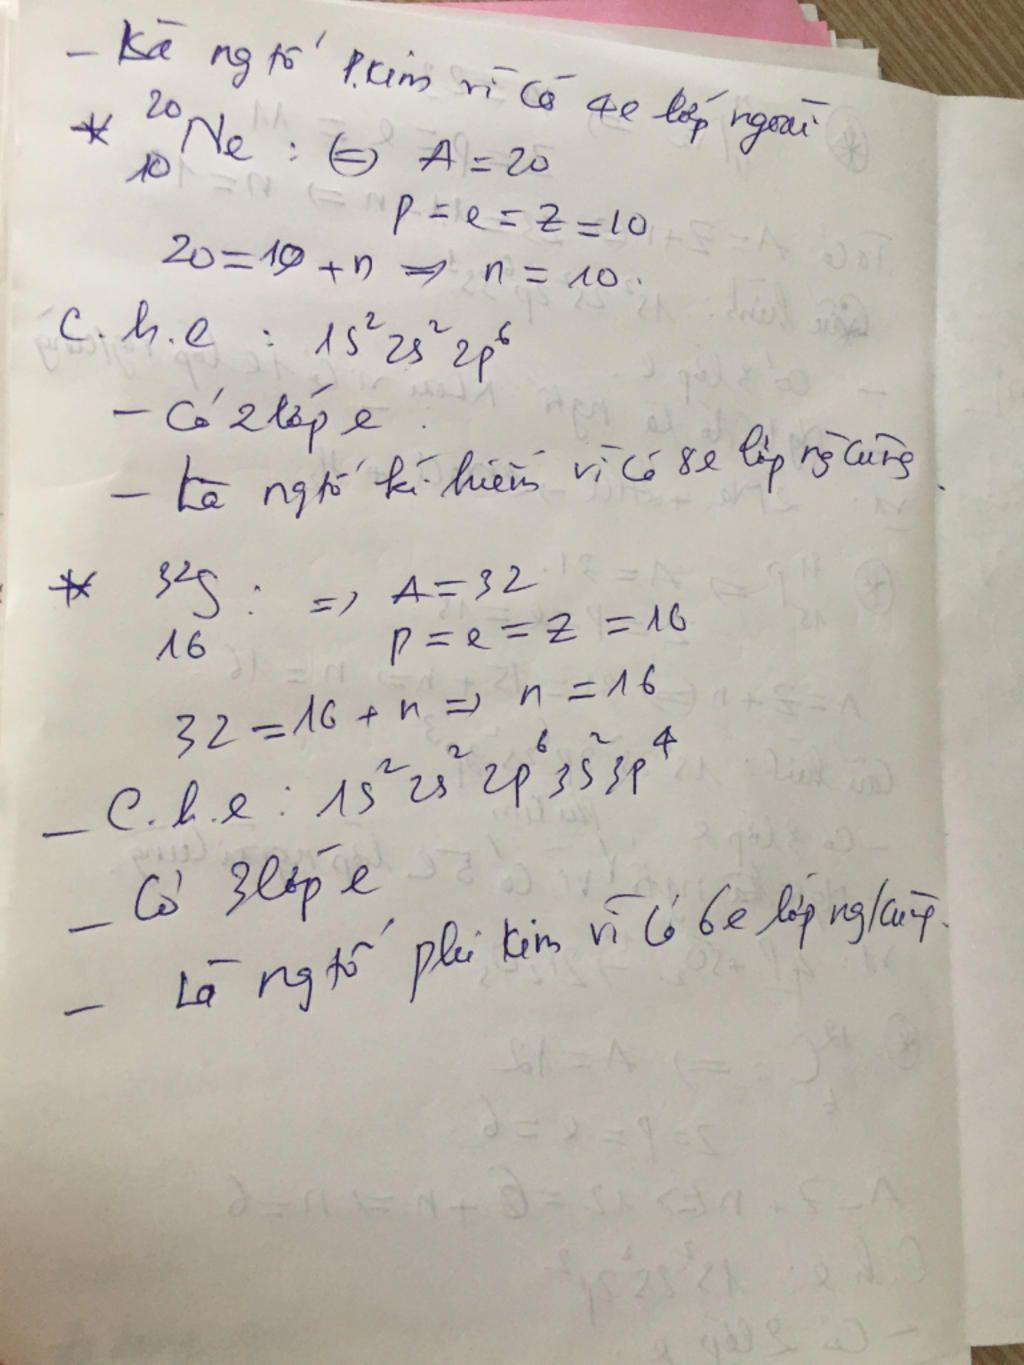 - Là ng tố p.kim vì có 4e lớp ngoài
* ²⁰₁₀Ne : ⇔ A = 20
p = e = Z = 10
20 = 10 + n => n = 10.
C.h.e : 1s² 2s² 2p⁶
- Có 2 lớp e.
- Là ng tố kí hiếm vì có 8e lớp ng cùng.
* ³²₁₆S : => A = 32
p = e = Z = 16
32 = 16 + n => n = 16
- C.h.e : 1s² 2s² 2p⁶ 3s² 3p⁴
- Có 3 lớp e
- Là ng tố phi kim vì có 6e lớp ng/cùng.